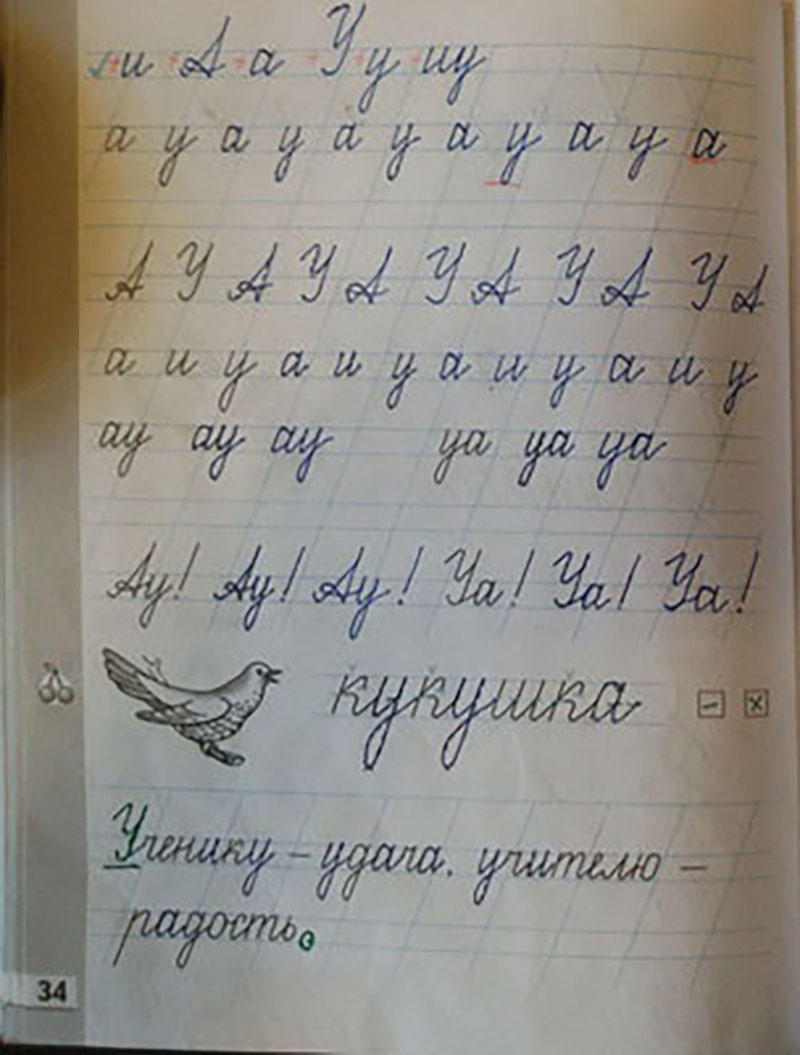 и А а У у иу
а у а у а у а у а у а
А У А У А У А У А У А
а и у а и у а и у а и у
ау ау ау уа уа уа
Ау! Ау! Ау! Уа! Уа! Уа!
кукушка
Ученику – удача. учителю –
радость.
34